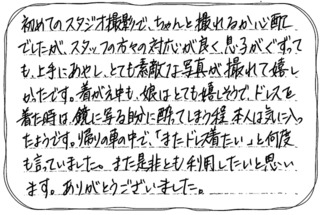 初めてのスタジオ撮影で、ちゃんと撮れるか心配
でしたが、スタッフの方々の対応が良く、息子がぐずって
も、上手にあやし、とても素敵な写真が撮れて嬉し
かったです。着がえ中も、娘はとても嬉しそうで、ドレスを
着た時は、鏡に写る自分に酔てしまう程 本人は気に入っ
たようです。帰りの車の中で、「またドレス着たい」と何度
も言っていました。また是非とも利用したいと思い
ます。ありがとうございました。